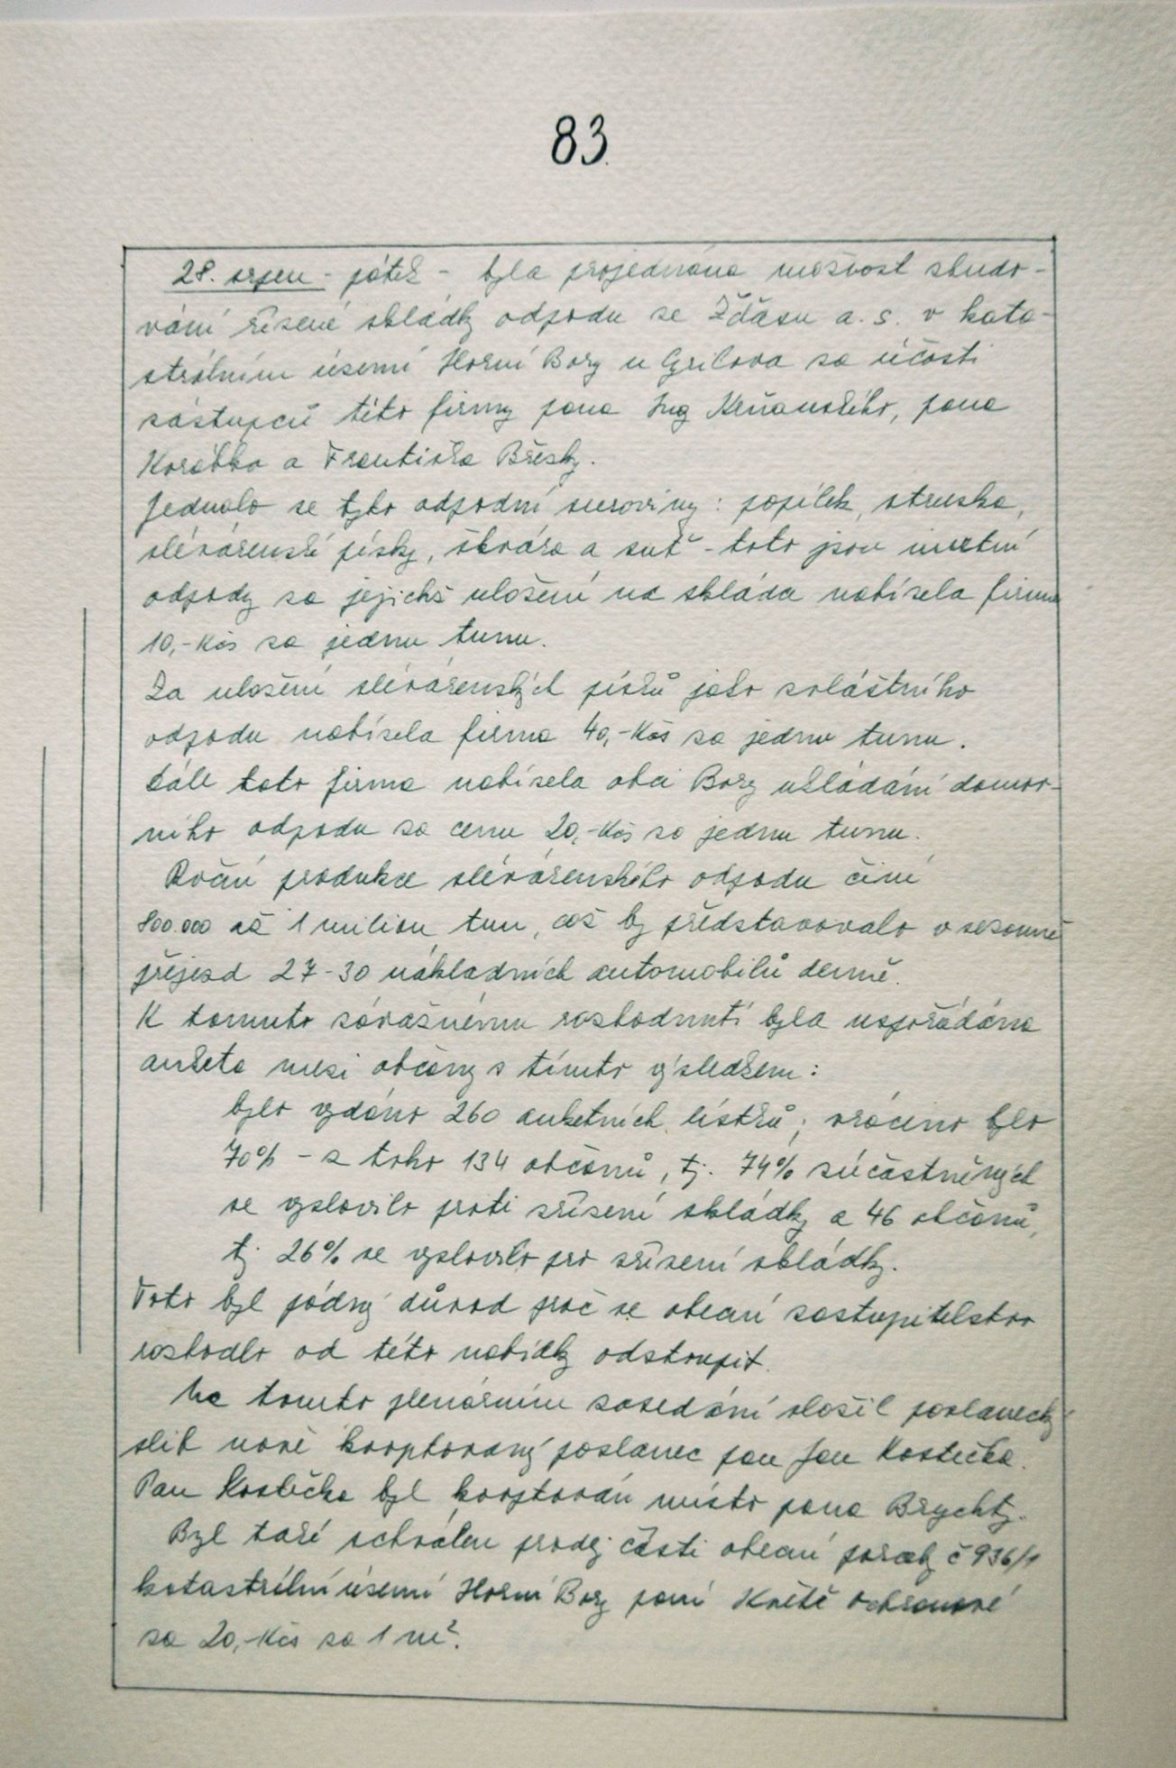 83.
28. srpen - pátek - byla projednána možnost zbudo-
vání řízené skládky odpadu ze Žďasu a. s. v kata-
strálním území Horní Bory u Grilova za účasti
zástupců této firmy pana Ing pana
Korábka a Františka Břízky.
Jednalo se tyto odpadní suroviny: popílek, struska,
slévárenské písky, škvára a suť - toto jsou inertní
odpady za jejichž uložení na skládu nabízela firma
10,- Kčs za jednu tunu.
Za uložení slévárenských písků jako zvláštního
odpadu nabízela firma 40,- Kčs za jednu tunu.
Dále tato firma nabízela obci Bory ukládání domov-
ního odpadu za cenu 20,- Kčs za jednu tunu.
Roční produkce slévárenského odpadu činí
800.000 až 1 milion tun, což by představovalo v sezonně
přejezd 27-30 nákladních automobilů denně.
K tomuto závažnému rozhodnutí byla uspořádána
anketa mezi občany s tímto výsledkem:
bylo vydáno 260 anketních lístků; vráceno bylo
70% - z toho 134 občanů, tj. 74% zúčastněných
se vyslovilo proti zřízení skládky a 46 občanů,
tj 26% se vyslovilo pro zřízení skládky.
Toto byl pádný důvod proč se obecní zastupitelstvo
rozhodlo od této nabídky odstoupit.
Na tomto plenárním zasedání složil poslanecký
slib nově kooptovaný poslanec pan Jan Kostečka.
Pan Kostečka byl kooptován místo pana Brychty.
Byl také schválen prodej části obecní parcely č 936/1
katastrální území Horní Bory paní Květě Ochranové
za 20,- Kčs za 1 m².